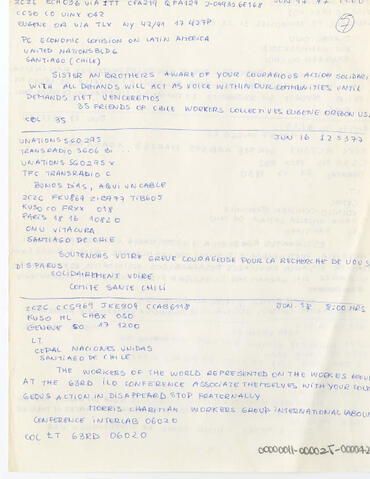 ZCZC ECA036 VIA ITT CFA219 QPA129
CCSO CO UINX 042
EUGENE OR VIA TLX NY 42/41 17 427P
7
PC ECONOMIC COMISION ON LATIN AMERICA
UNITED NATIONS BLDG
SANTIAGO (CHILE)
SISTER AN BROTHERS AWARE OF YOUR COURAGIOUS ACTION SOLIDARI
WITH ALL DEMANDS WILL ACT AS VOICE WITHIN OUR COMMUNITIES UNTIL
DEMANDS MET. VENCEREMOS
35 FRIENDS OF CHILE WORKERS COLLECTIVES EUGENE OREGON USA
COL 35
UNATIONS SGO295 JUN 16 125377
TRANSRADIO SGO6 BI ...
UNATIONS SGO295 X
TFC TRANSRADIO C
BUNOS DIAS, AQUI UN CABLE
ZCZC FKU869 ZIB977 TIB605
KUSO CO FRXX 018
PARIS 18 16 10820
ONU VITACURA
SANTIAGO DE CHILE
SOUTENONS VOTRE GREVE COURAGEUSE POUR LA RECHERCHE DE VOUS
DISPARUS
SOLIDAIREMENT VOTRE
COMITE SANTE CHILI
ZCZC CCS969 JKE909 CCAB6118 JUN 18 8:00 HRS
KUSO HL CHBX 050
GENEVE 50 17 1200
LT
CEPAL NACIONES UNIDAS
SANTIAGO DE CHILE
THE WORKERS OF THE WORLD REPRESENTED ON THE WORKES GROU
AT THE 63RD ILO CONFERENCE ASSOCIATE THEMSELVES WITH YOUR COUR
GEOUS ACTION IN DISAPPEARD STOP FRATERNALLY
MORRIS CHARITIAN WORKERS GROUP INTERNATIONAL LABOU
CONFERENCE INTERLAB 06020
COL LT 63RD 06020
00000011-000025-000042